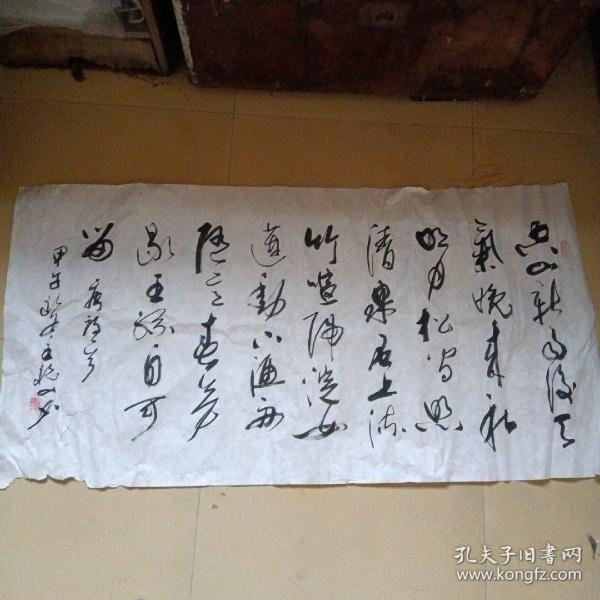 空山新雨后天
气晚来秋
明月松间照
清泉石上流
竹喧归浣女
莲动下渔舟
随意春芳
歇王孙自可
留 唐诗一首
甲午
孔夫子旧书网
www.kongfz.com